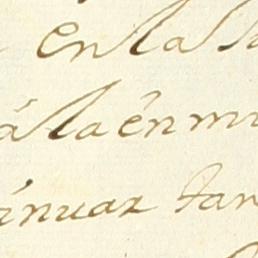 en la
à la én mi
inuar tan